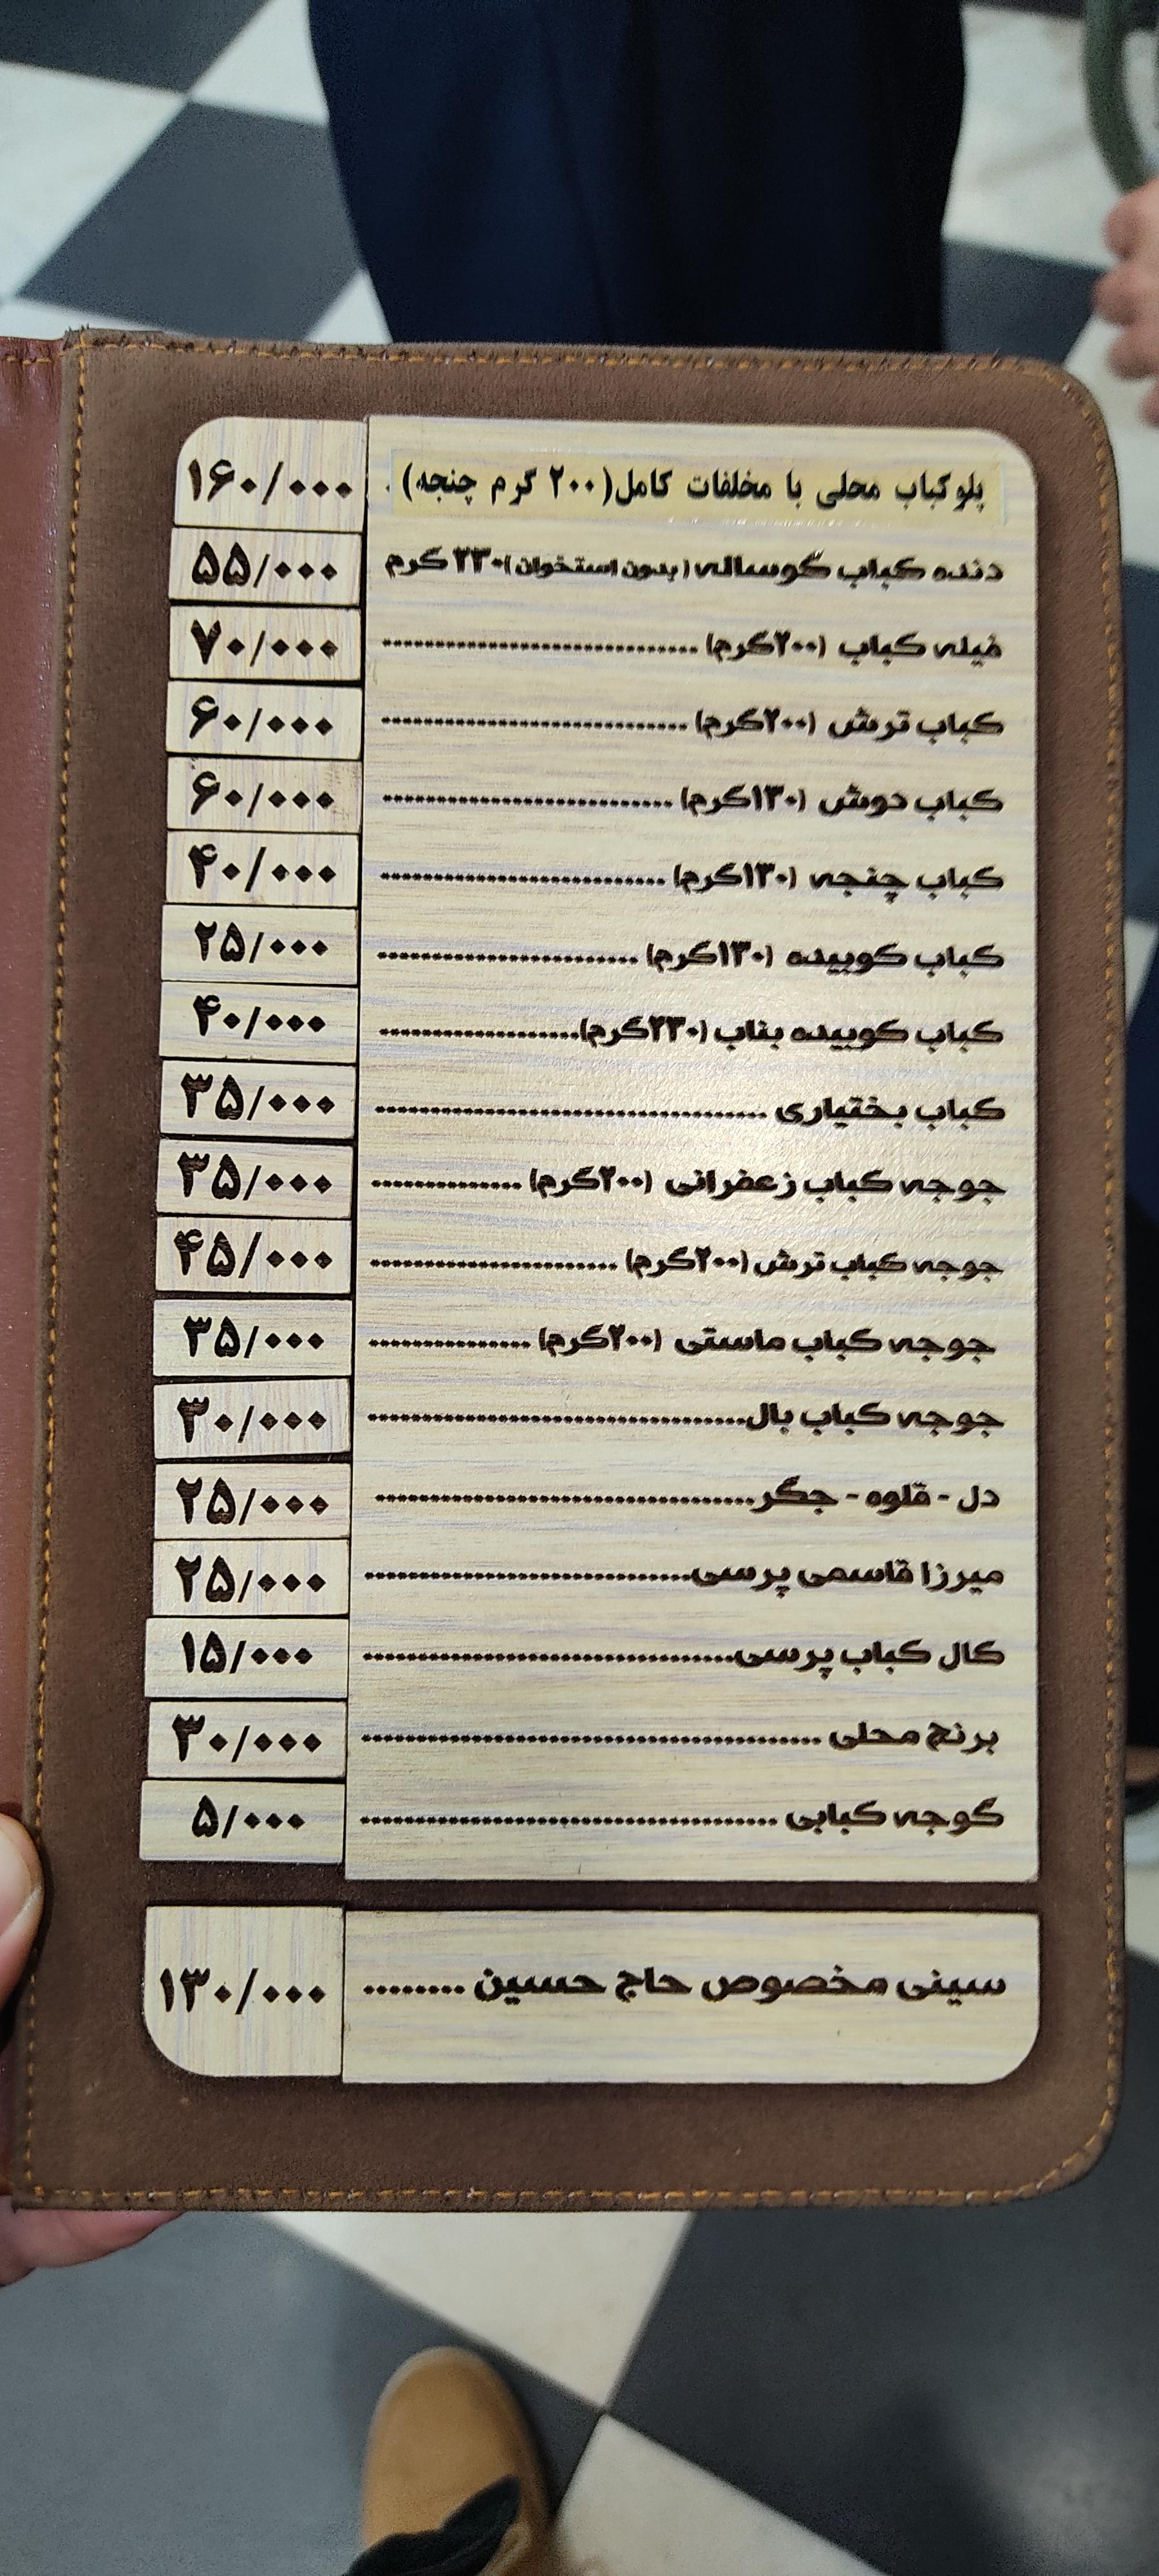 پلو کباب محلی با مخلفات کامل (۲۰۰ گرم چنجه) . ۱۶۰/۰۰۰
دنده کباب گوساله (بدون استخوان) ۲۳۰ گرم ۵۵/۰۰۰
فیله کباب (۲۰۰گرم) ........ ۷۰/۰۰۰
کباب ترش (۲۰۰گرم) ........ ۶۰/۰۰۰
کباب دوش (۱۳۰گرم) ........ ۶۰/۰۰۰
کباب چنجه (۱۳۰گرم) ........ ۴۰/۰۰۰
کباب کوبیده (۱۳۰گرم) ........ ۲۵/۰۰۰
کباب کوبیده بناب (۲۳۰گرم) ........ ۴۰/۰۰۰
کباب بختیاری ........ ۳۵/۰۰۰
جوجه کباب زعفرانی (۲۰۰گرم) ........ ۳۵/۰۰۰
جوجه کباب ترش (۲۰۰گرم) ........ ۴۵/۰۰۰
جوجه کباب ماستی (۲۰۰گرم) ........ ۳۵/۰۰۰
جوجه کباب بال ........ ۳۰/۰۰۰
دل - قلوه - جگر ........ ۲۵/۰۰۰
میرزا قاسمی پرسی ........ ۲۵/۰۰۰
کال کباب پرسی ........ ۱۵/۰۰۰
برنج محلی ........ ۳۰/۰۰۰
گوجه کبابی ........ ۵/۰۰۰
سینی مخصوص حاج حسین ........ ۱۳۰/۰۰۰